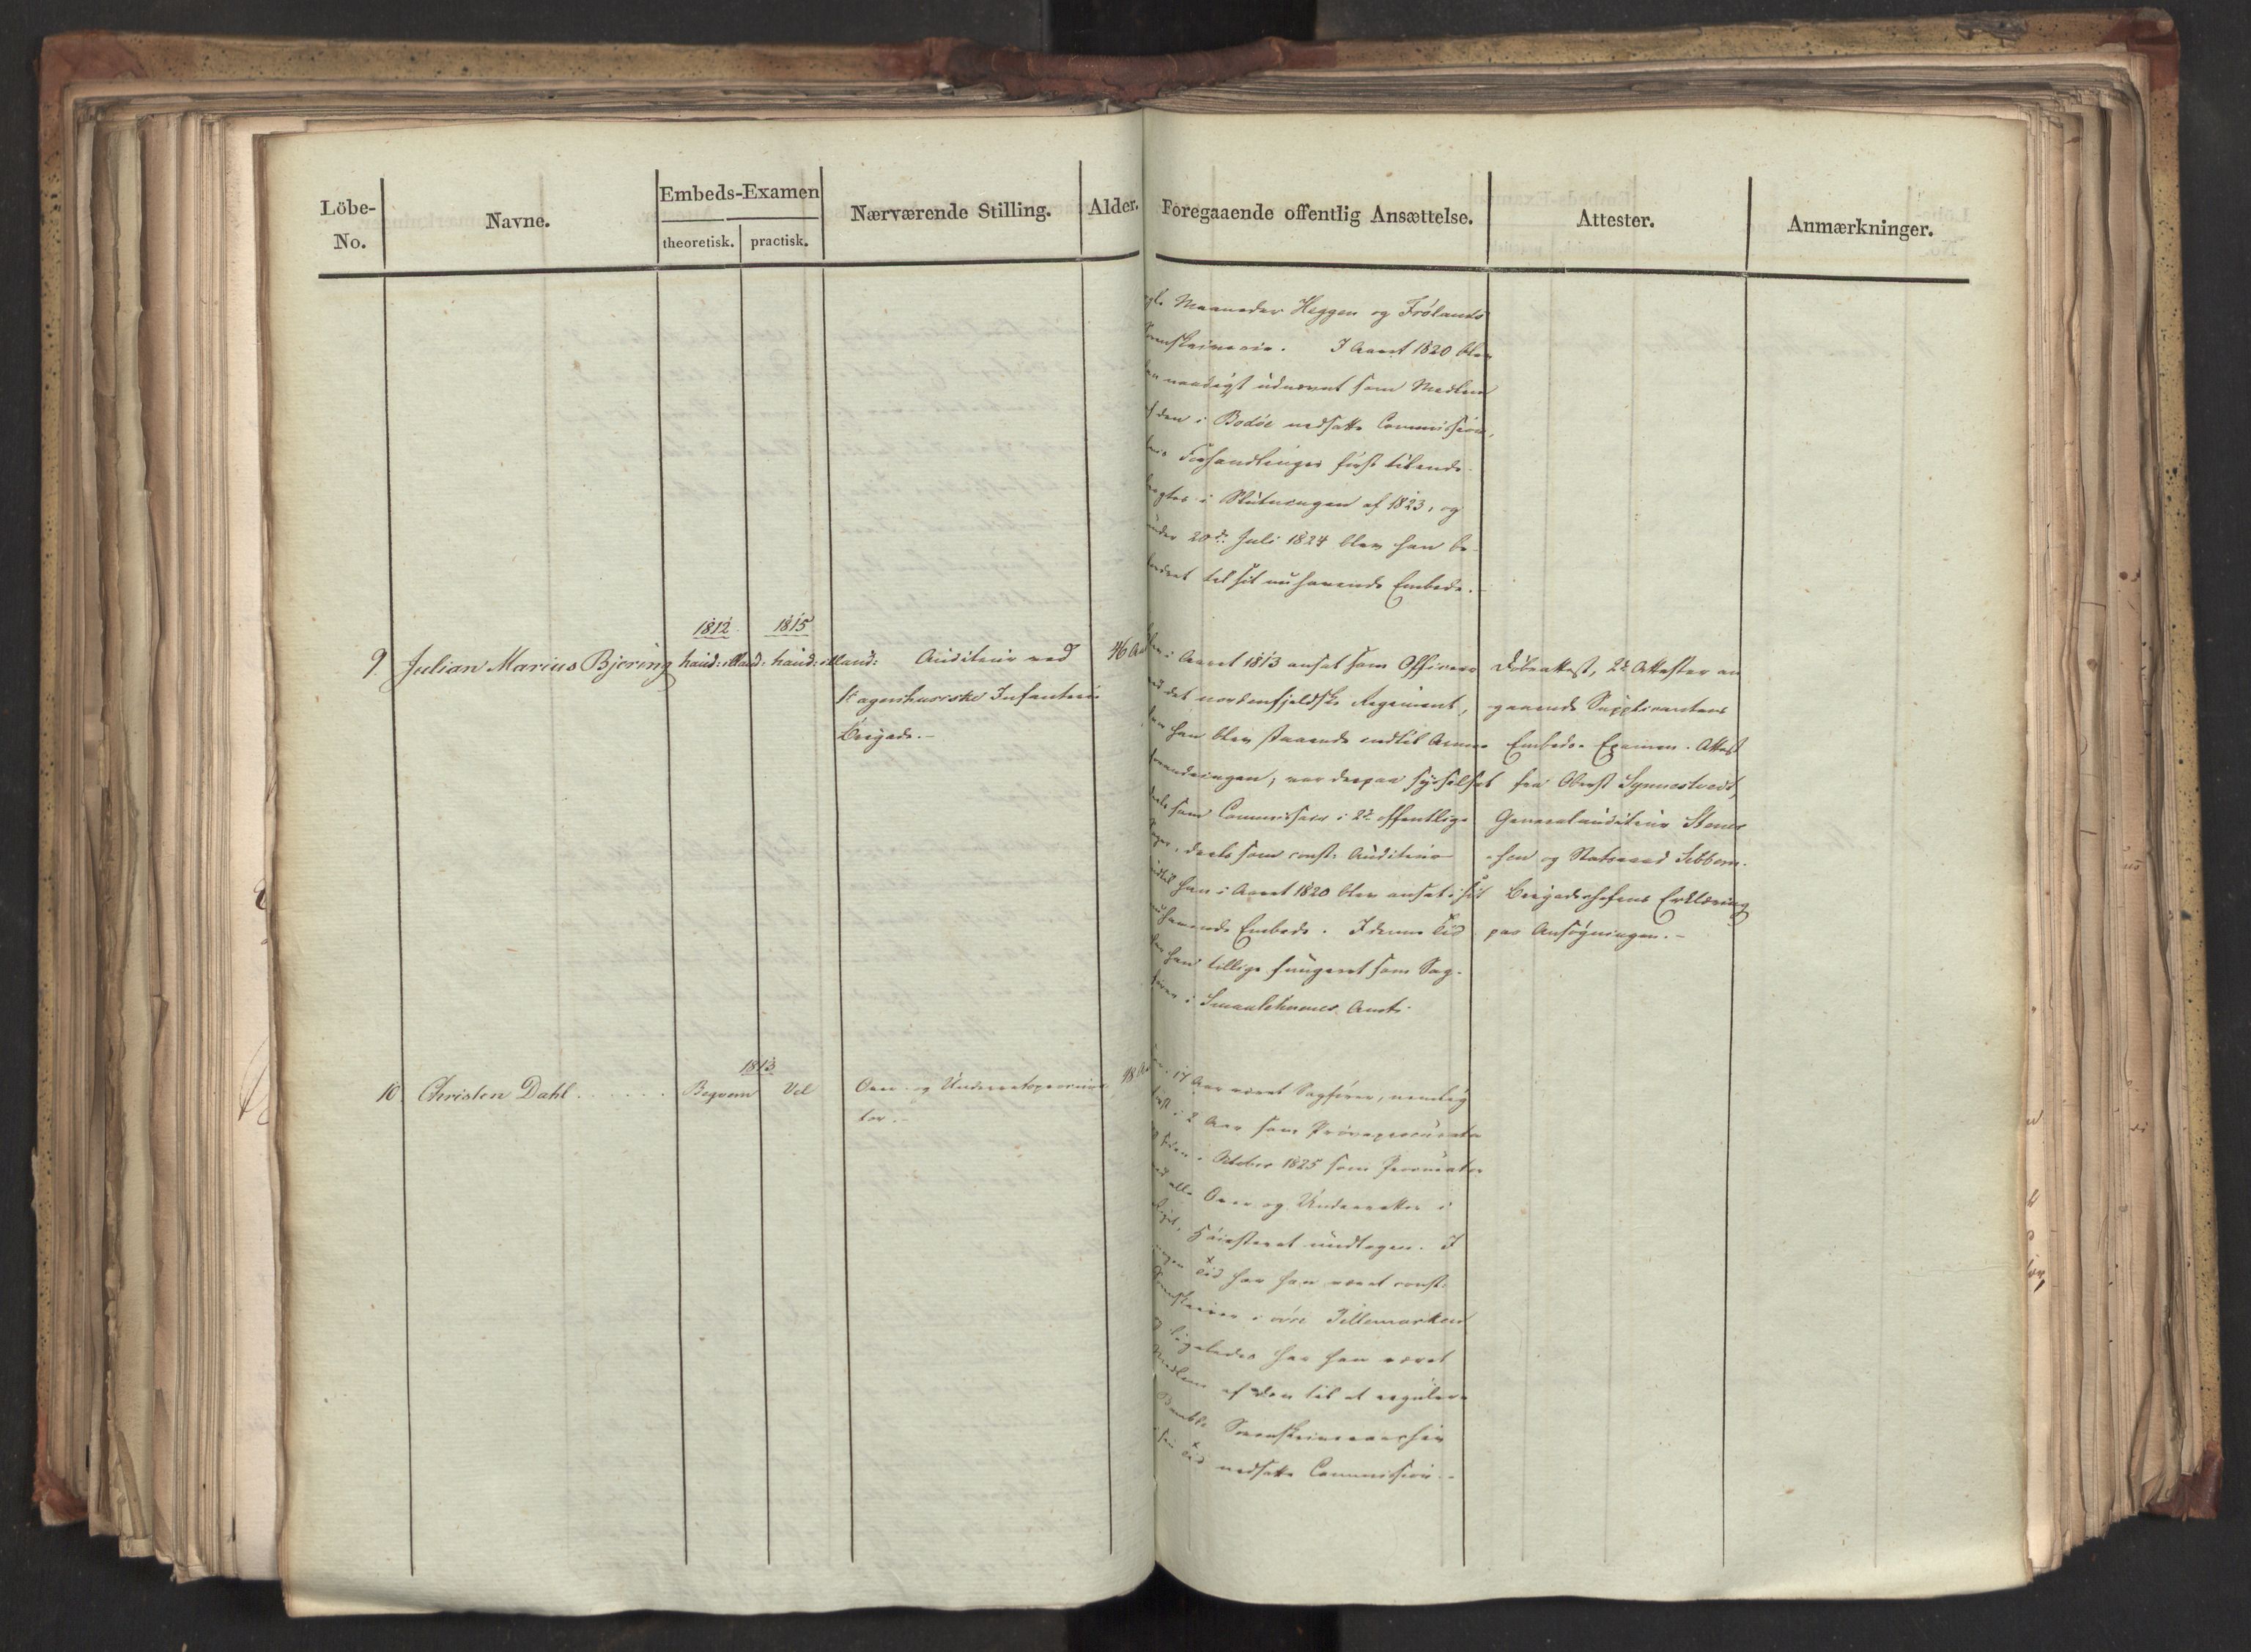 Löbe-
No.
Navne.
Embeds-Examen
theoretisk. practisk.
Nærværende Stilling.
Alder.
Foregaaende offentlig Ansættelse.
Attester.
Anmærkninger.
Maaneder Heggen og Frölands
I Aaret 1820 blev
naadigst udnævnt som Medlem
den i Bodøe nedsatte Commission,
Forhandlinger først tilende-
i Slutningen af 1823, og
under 20de Juli 1824 blev han be-
til sit nu havende Embede.
1812 1815
9. Julian Marius Bjering haud: illaud: haud: illaud: Auditeur ved
Aggershuusiske Infanterie
Brigade.-
46 Aar
i Aaret 1813 ansat som Officeer
det nordenfjeldske Regiment,
han blev staaende indtil Armee
forandringen, var derpaa sysselsat
som Commissair i 2de offentlige
deels som const: Auditeur
indtil han i Aaret 1820 blev ansat i sit
nuhavende Embede. I denne Tid
han tillige fungeret som Sag-
fører i Smaalehnenes Amt.
Døbeattest, 2de Attester an
gaaende Supplicantens
Embeds-Examen. Attest
fra Oberst Synnestvedt,
Generalauditeur Steners
sen og Statsraad Sibbern.
Brigadechefens Erklæring
paa Ansøgningen.-
1813
10. Christen Dahl . . . . . . Beqvem Vel Over- og Underretsprocura
tor.-
48 Aar
17 Aar været Sagfører, nemlig
først i 2 Aar som Prøveprocurator
siden October 1825 som Procurator
ved alle Over og Underretter i
Riget, Høiesteret undtagen. I
nogen Tid har han været const:
Sorenskriver i øvre Tellemarken
og ligeledes har han været
Medlem af den til at regulere
Bamble Sorenskriverie
sin Tid nedsatte Commission.-